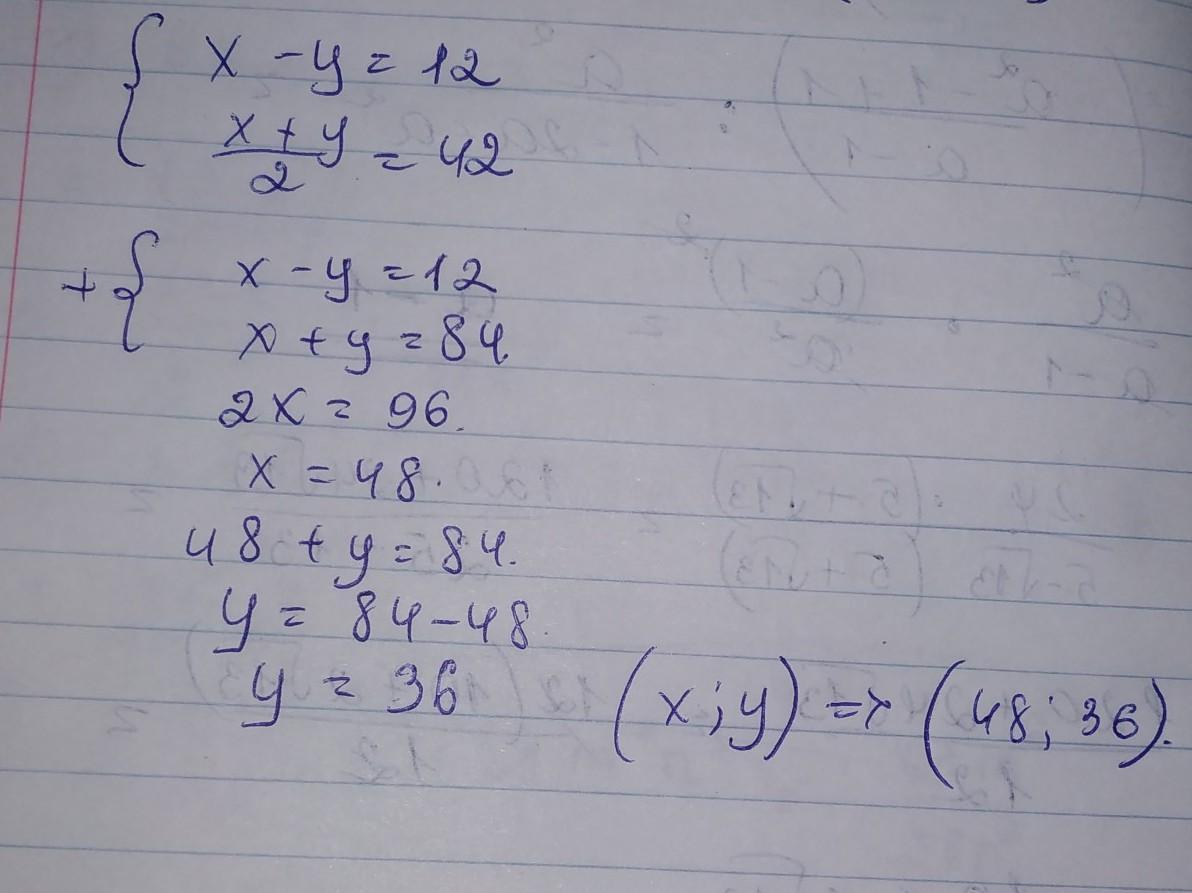 { x - y = 12
x + y / 2 = 42
+ { x - y = 12
x + y = 84
2x = 96.
x = 48.
48 + y = 84.
y = 84 - 48.
y = 36 (x; y) => (48; 36).